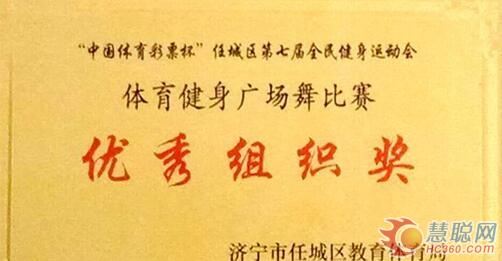 “中国体育彩票杯”任城区第七届全民健身运动会
体育健身广场舞比赛
优秀组织奖
济宁市任城区教育体育局
慧聪网
HC360.com